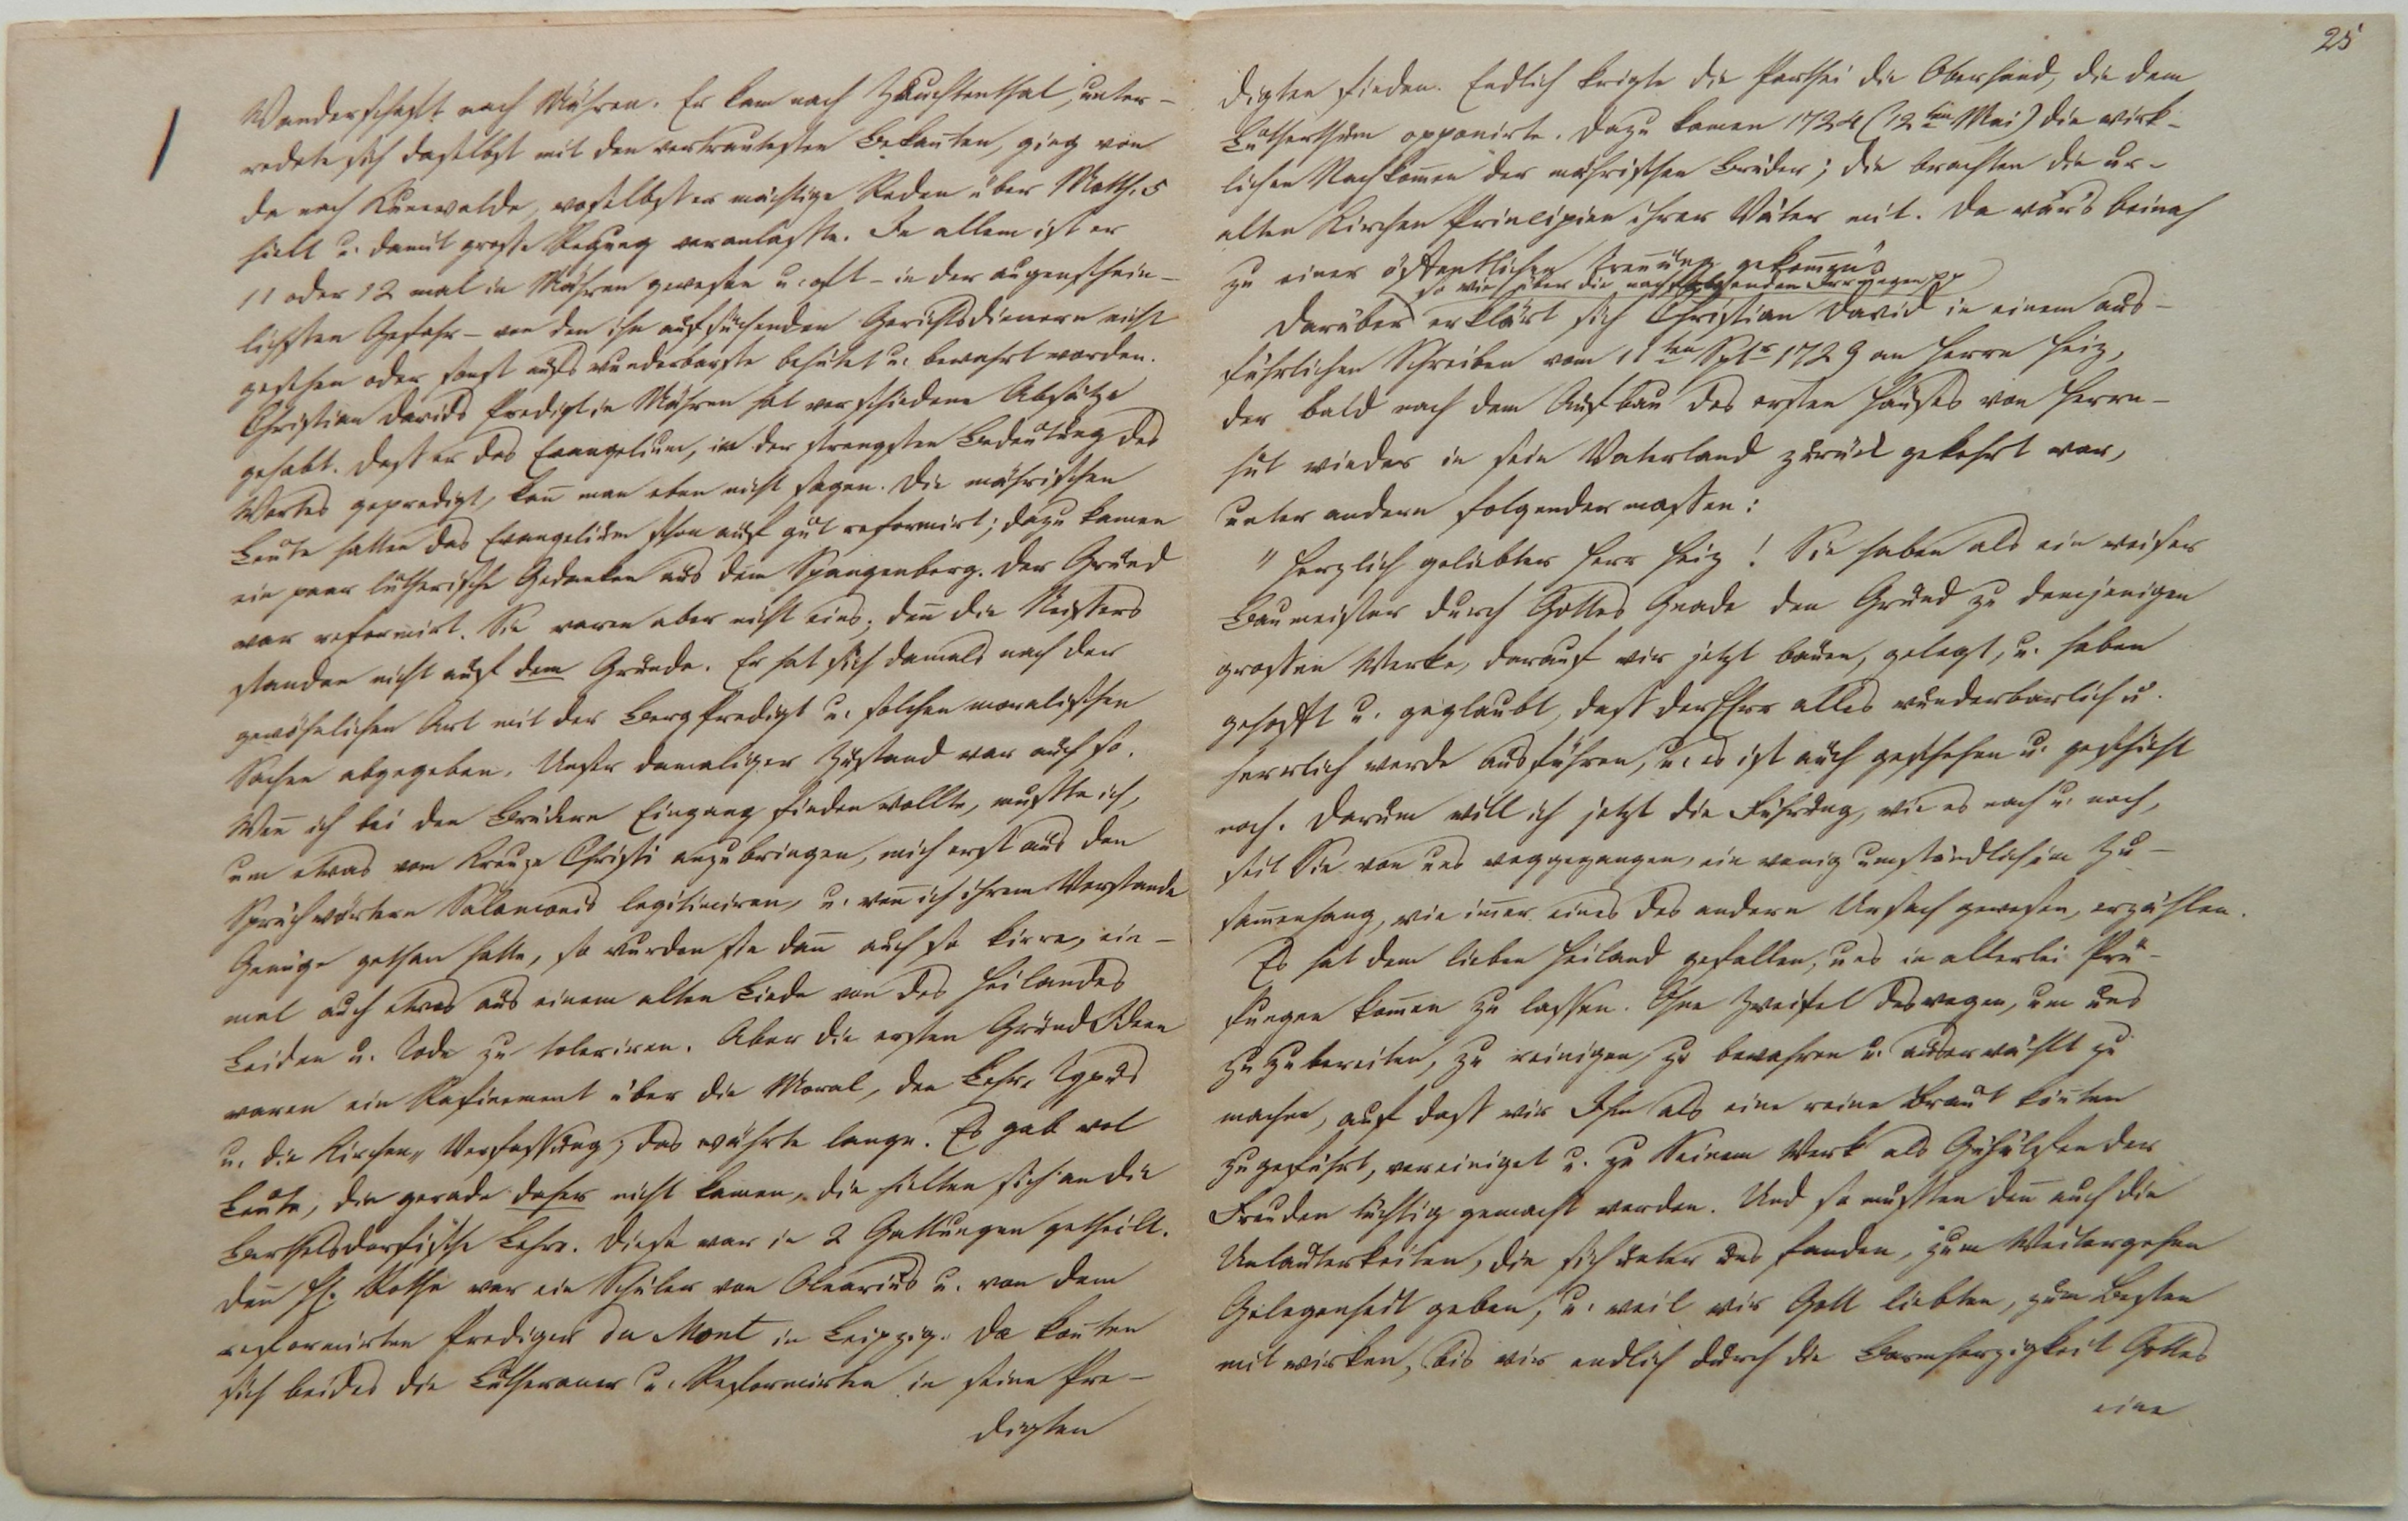 Wanderschaft nach Mähren. Er kam nach Zauchtenthal, unter-
redete sich daselbst mit den vertrautesten Bekañten, ging von
da nach Kunewalde, woselbst er mächtige Reden über Matth. 5
hielt u. damit grosse Regung veranlasste. In allem ist er
11 oder 12 mal in Mähren gewesen u. oft – in der augenschein-
lichsten Gefahr – von den ihn aufsuchenden Gerichtsdienern nicht
gesehen oder sonst aufs wunderbarste behütet u. bewahrt worden.
Christian Davids Predigt in Mähren hat verschiedene Absätze
gehabt. Dass er das Evangelium, in der strengsten Bedeutung des
Wortes gepredigt, kañ man eben nicht sagen. Die mährischen
Leute hatten das Evangelium schon auf gut reformirt; dazu kamen
ein paar lutherische Gedanken aus dem Spangenberg. Der Grund
war reformirt. Sie waren aber nicht eins; deñ die Neissers
standen nicht auf dem Grunde. Er hat sich damals nach der
gewöhnlichen Art mit der Bergpredigt u. solchen moralischen
Sachen abgegeben. Unser damaliger Zustand war auch so.
Weñ ich bei den Brüdern Eingang finden wollte, musste ich,
um etwas vom Kreuze Christi anzubringen, mich erst aus den
Sprüchwörtern Salomonis legitimiren, u. weñ ich ihrem Verstande
Genüge gethan hatte, so wurden sie dañ auch so kirre, ein-
mal auch etwas aus einem alten Liede von des Heilandes
Leiden u. Tode zu toleriren. Aber die ersten Grund Ideen
waren ein Rafinement über die Moral, den Lehr-Typus
u. die Kirchen-Verfassung; das währte lange. Es gab wol
Leute, die gerade daher nicht kamen, die hielten sich an die
Berthelsdorfische Lehre. Diese war in 2 Gattungen getheilt.
Deñ H. Rothe war ein Schüler von Olearius u. von dem
reformirten Prediger du Mont in Leipzig. Da koñten
sich beides die Lutheraner u. Reformirten in seine Pre-
digten
25
digten finden. Endlich krigte die Parthei die Oberhand, die dem
Lutherthum opponirte. Dazu kamen 1724 (12ten Mai) die wirk-
lichen Nachkom̃en der mährischen Brüder; die brachten die ur-
alten Kirchen Principien ihrer Väter mit. Da wär's beinah
zu einer öffentlichen Treñung gekom̃en"
so wie über die nachfolgenden Irrungen pp
Darüber erklärt sich Christian David in einem aus-
führlichen Schreiben vom 11ten Sptr 1729 an Herrn Heiz,
der bald nach dem Aufbau des ersten Hauses von Herrn-
hut wieder in sein Vaterland zurück gekehrt war,
unter andern folgender massen:
"Herzlich geliebter Herr Heiz! Sie haben als ein weiser
Baumeister durch Gottes Gnade den Grund zu demjenigen
grossen Werke, darauf wir jetzt bauen, gelegt, u. haben
gehofft u. geglaubt, dass der HErr alles wunderbarlich u.
herrlich werde ausführen, u. es ist auch geschehen u. geschieht
noch. Darum will ich jetzt die Führung, wie es nach u. nach,
seit Sie von uns weggegangen, ein wenig umständlich im Zu-
sam̃enhang, wie im̃er eines des andern Ursach gewesen, erzählen.
Es hat dem lieben Heiland gefallen, uns in allerlei Prü-
fungen kom̃en zu lassen. Ohne Zweifel deswegen, um uns
zuzubereiten, zu reinigen, zu bewahren u. auserwählt zu
machen, auf dass wir Ihm als eine reine Braut köñten
zugeführt, vereiniget u. zu Seinem Werk als Gehülfen der
Freuden tüchtig gemacht werden. Und so mussten deñ auch die
Unlauterkeiten, die sich unter uns fanden, zum Weitergehen
Gelegenheit geben, u. weil wir Gott liebten, zum Besten
mit wirken, bis wir endlich durch die Barmherzigkeit Gottes
eine